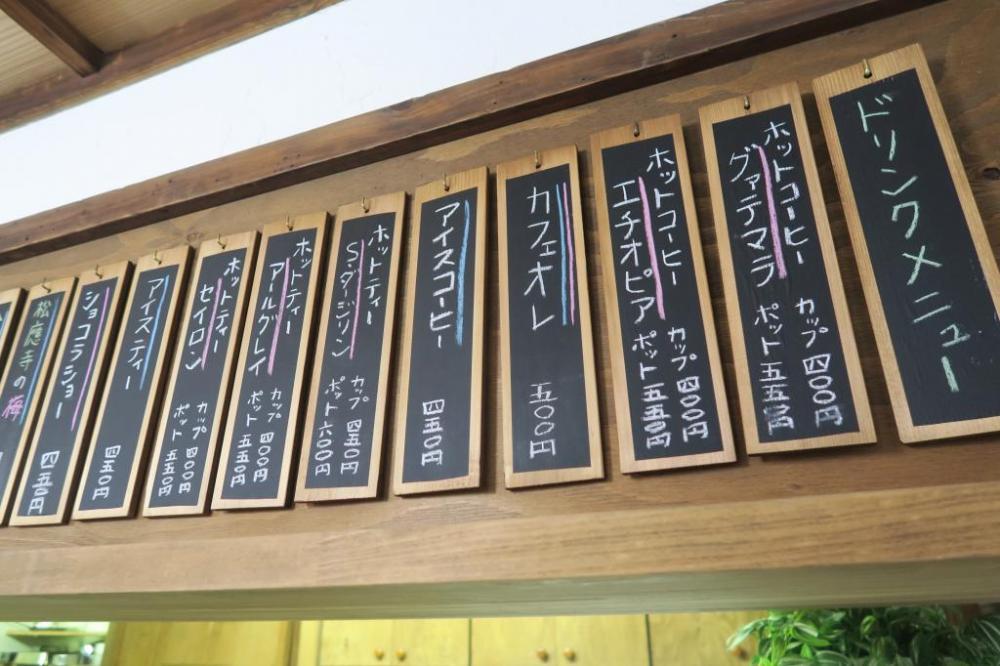 ドリンクメニュー
ホットコーヒー
グァテマラ
カップ 四〇〇円
ポット 五五〇円
ホットコーヒー
エチオピア
カップ 四〇〇円
ポット 五五〇円
カフェオレ 五〇〇円
アイスコーヒー 四五〇円
ホットティー
S.ダージリン
カップ 四五〇円
ポット 六〇〇円
ホットティー
アールグレイ
カップ 四〇〇円
ポット 五五〇円
ホットティー
セイロン
カップ 四〇〇円
ポット 五五〇円
アイスティー 四五〇円
ショコラショー 四五〇円
松應寺の梅